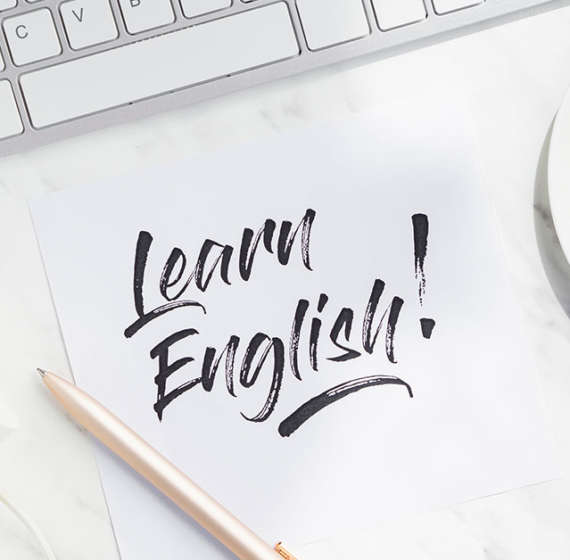 C V B N M
Learn
English!